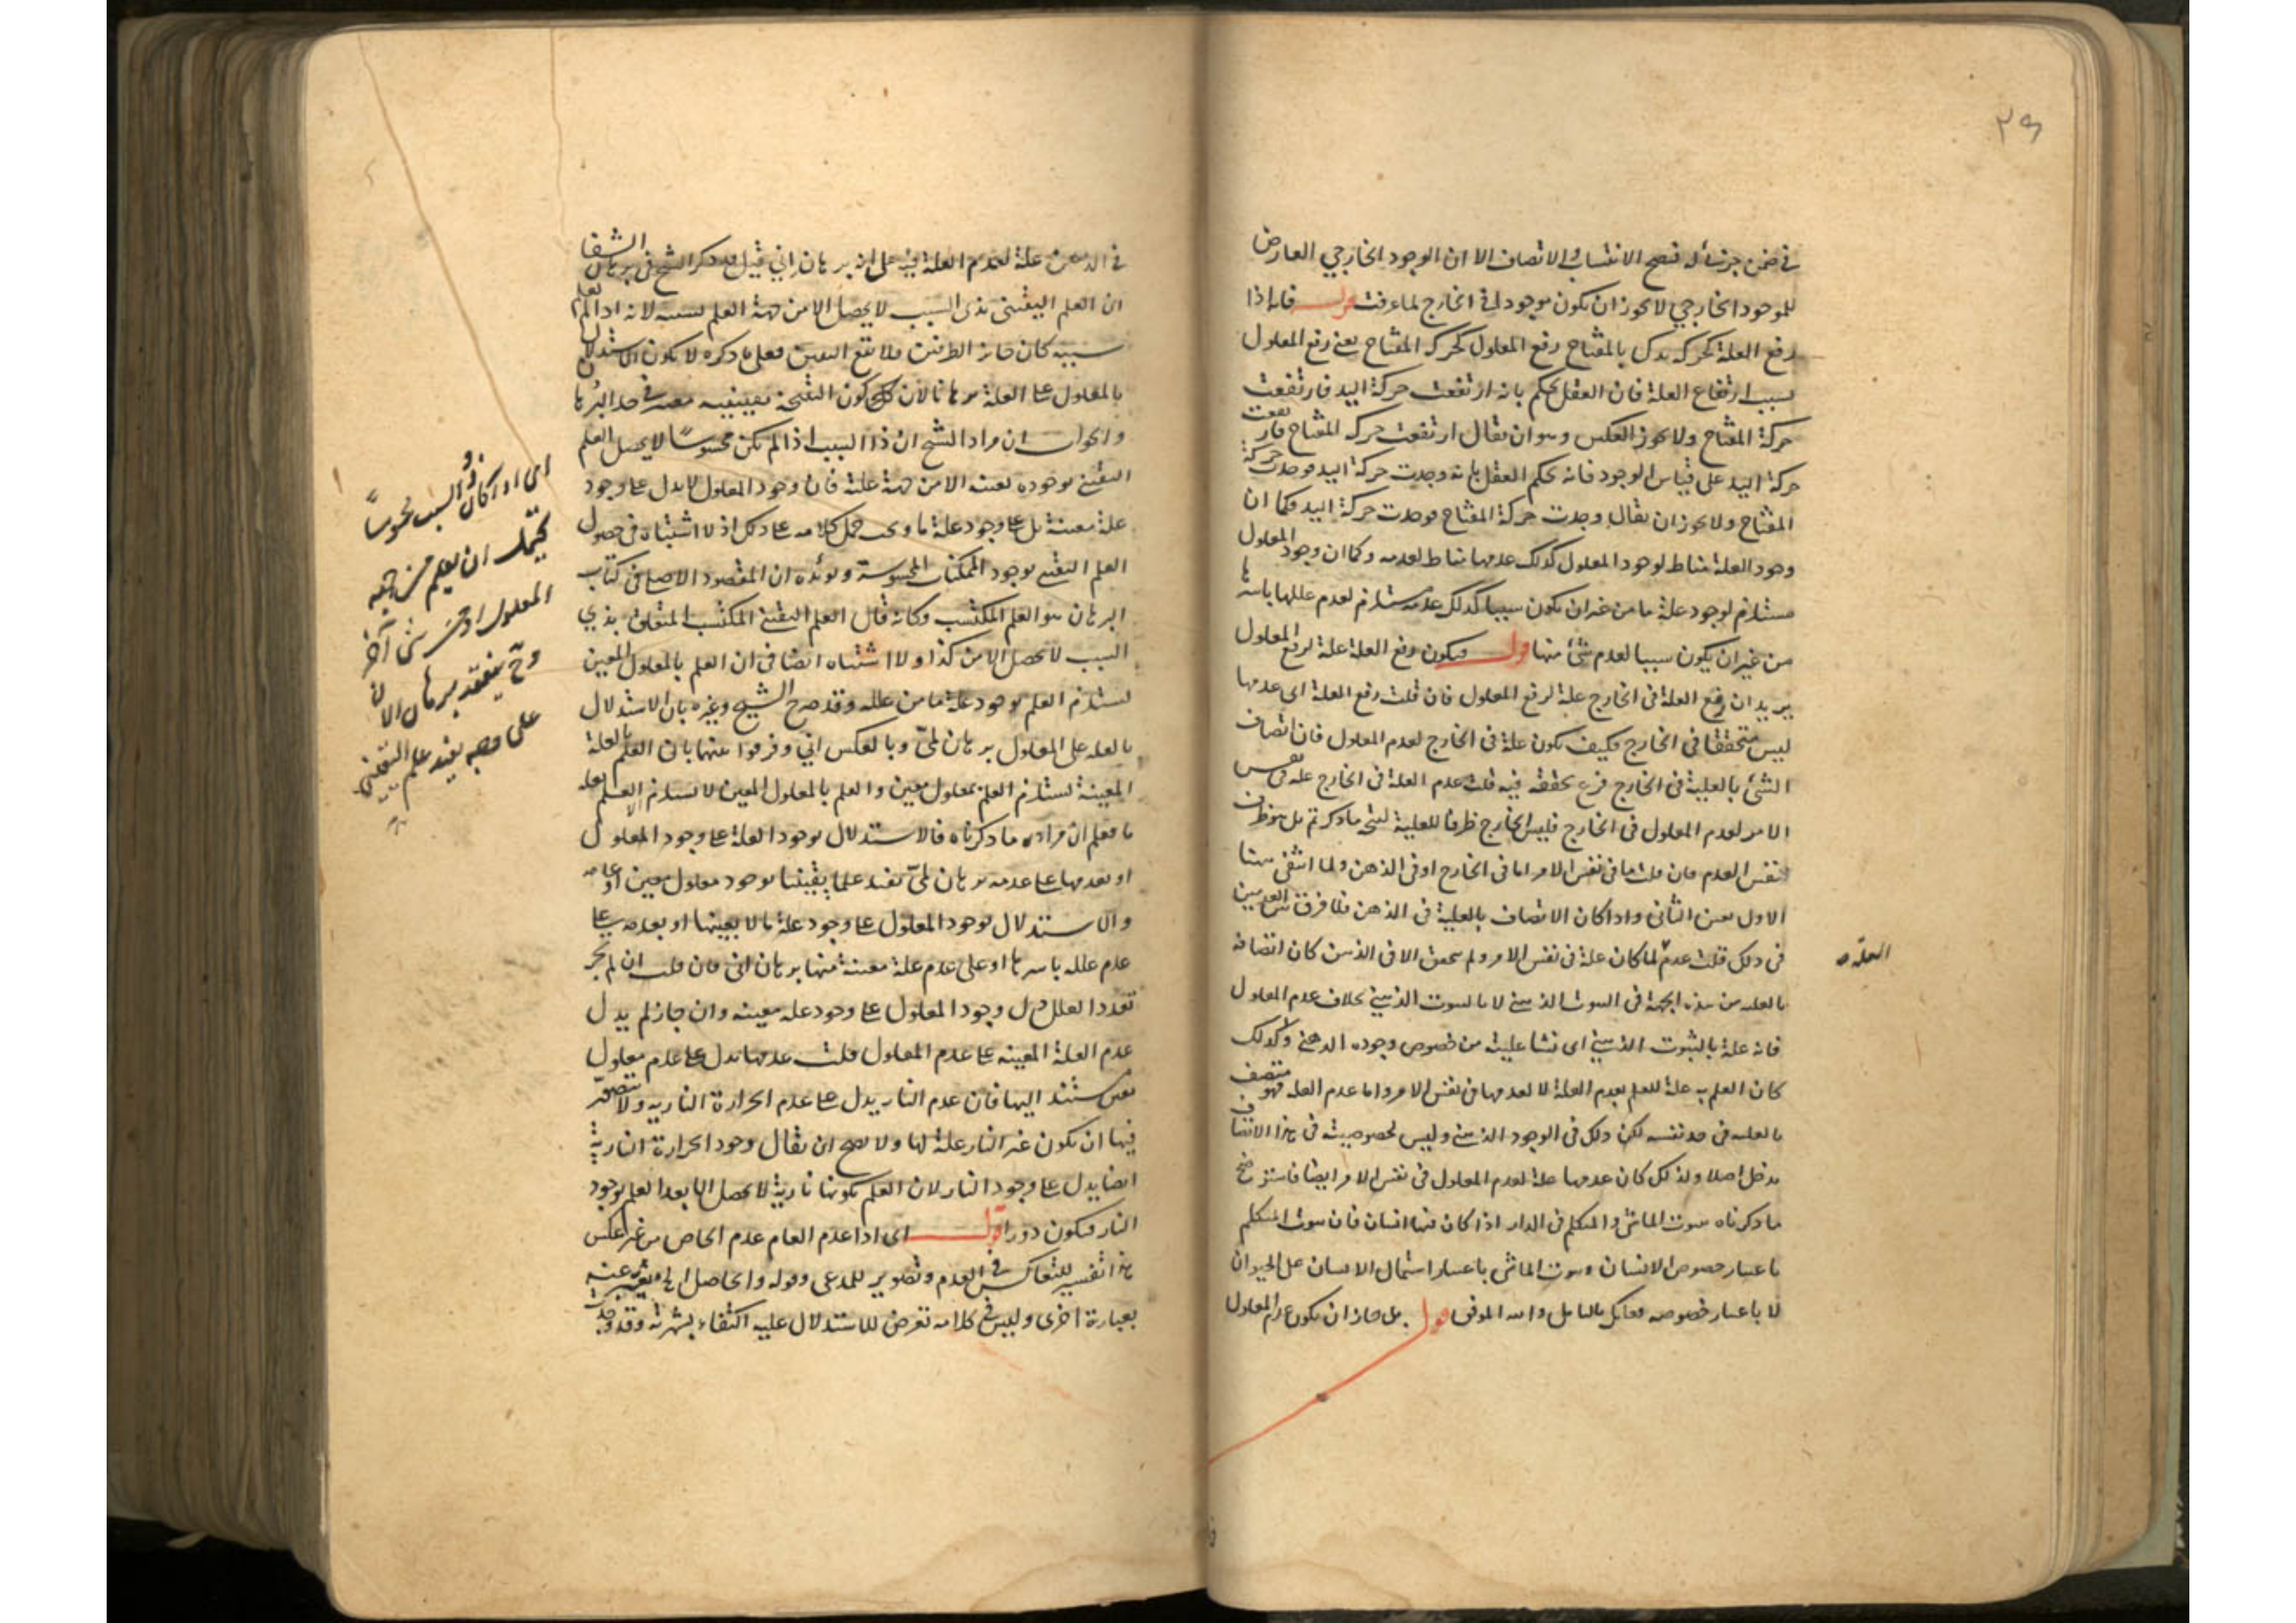 ٢٩
في ضمن جزئياته فتصح الانتساب والاتصاف الا ان الوجود الخارجي العارض
للموجود الخارجي لا يجوز ان يكون موجودا في الخارج لما عرفت قوله فانه اذا
رفع العلة كحركة يدك بالمفتاح رفع المعلول كحركة المفتاح يعني رفع المعلول
بسبب ارتفاع العلة فان العقل يحكم بانه ارتفعت حركة اليد فارتفعت
حركة المفتاح ولا يجوز العكس وهو ان يقال ارتفعت حركة المفتاح فارتفعت
حركة اليد على قياس الوجود فانه يحكم العقل بانه وجدت حركة اليد فوجدت حركة
المفتاح ولا يجوز ان يقال وجدت حركة المفتاح فوجدت حركة اليد فكما ان
وجود العلة مناط لوجود المعلول كذلك عدمها مناط لعدمه وكما ان وجود المعلول
مستلزم لوجود علة ما من غير ان يكون سببا كذلك عدمه مستلزم لعدم عللها باسرها
من غير ان يكون سببا لعدم شئ منها قوله فيكون رفع العلة علة لرفع المعلول
يريد ان رفع العلة في الخارج علة لرفع المعلول فان قلت رفع العلة اي عدمها
ليس متحققا في الخارج فكيف يكون علة في الخارج لعدم المعلول فان اتصاف
الشئ بالعلية في الخارج فرع تحققه فيه قلت عدم العلة في الخارج علة في نفس
الامر لعدم المعلول في الخارج فليس الخارج ظرفا للعلية ليتجه ما ذكرتم بل هو ظرف
لنفس العدم فان قلت ما في نفس الامر اما في الخارج او في الذهن ولما انتفى ههنا
الاول تعين الثاني واذا كان الاتصاف بالعلية في الذهن فلا فرق بين العدمين
في ذلك قلت عدم لما كان علة في نفس الامر ولم يتحقق الا في الذهن كان اتصافه
العلة صح
بالعلية من هذه الجهة في الثبوت الذهني لا بالثبوت الذهني بخلاف عدم المعلول
فانه علة بالثبوت الذهني اي نشا عليته من خصوص وجوده الذهني ولذلك
كان العلم به علة للعلم بعدم العلة لا لعدمها في نفس الامر واما عدم العلة فهو متصف
بالعلية في حد نفسه لكن ذلك في الوجود الذهني وليس لخصوصيته في هذا الاتصاف
مدخل اصلا ولذلك كان عدمها علة لعدم المعلول في نفس الامر ايضا فاستوضح
ما ذكرناه بثبوت الماشي والمتكلم في الدار اذا كان فيها انسان فان ثبوت المتكلم
باعتبار خصوص الانسان وثبوت الماشي باعتبار اشتمال الانسان على الحيوان
لا باعتبار خصوصه فعليك بالتامل والله الموفق قوله بل جاز ان يكون عدم المعلول
في الذهن علة لعدم العلة فيه على انه برهان اني قيل قد ذكر الشيخ في برهان الشفا
ان العلم اليقيني بذي السبب لا يحصل الا من جهة العلم بسببه لانه اذا لم يعلم
سببه كان جائز الطرفين فلا يقع اليقين فعلى ما ذكره لا يكون الاستدلال
بالمعلول على العلة برهانا لان كون النتيجة يقينية معتبر في حد البرهان
والجواب ان مراد الشيخ ان ذا السبب اذا لم يكن محسوسا لا يحصل العلم
اليقيني بوجوده بعينه الا من جهة علته فان وجود المعلول لا يدل على وجود
علة معينة بل على وجود علة ما ويجب حمل كلامه على ذلك اذ لا اشتباه في حصول
العلم اليقيني بوجود الممكنات المحسوسة ويؤيده ان المقصود الاصلي في كتاب
البرهان هو العلم المكتسب وكانه قال العلم اليقيني المكتسب المتعلق بذي
السبب لا يحصل الا من كذا ولا اشتباه ايضا في ان العلم بالمعلول المعين
يستلزم العلم بوجود علة ما من علله وقد صرح الشيخ وغيره بان الاستدلال
بالعلة على المعلول برهان لمي وبالعكس اني وفرقوا بينهما بان العلم بالعلة
المعينة يستلزم العلم بمعلول معين والعلم بالمعلول المعين لا يستلزم العلم بعلة
ما فعلم ان مراده ما ذكرناه فالاستدلال بوجود العلة على وجود المعلول
او بعدمها على عدمه برهان لمي يفيد علما يقينيا بوجود معلول معين او عدمه
والاستدلال بوجود المعلول على وجود علة ما لا بعينها او بعدمه على
عدم علله باسرها او على عدم علة معينة منها برهان اني فان قلت ان لم يجز
تعدد العلل دل وجود المعلول على وجود علة معينة وان جاز لم يدل
عدم العلة المعينة على عدم المعلول قلت عدمها يدل على عدم معلول
معين يستند اليها فان عدم النار يدل على عدم الحرارة النارية ولا يتصور
فيها ان يكون غير النار علة لها ولا يصح ان يقال وجود الحرارة النارية
ايضا يدل على وجود النار لان العلم بكونها نارية لا يحصل الا بعد العلم بوجود
النار فيكون دورا قوله اي اذا عدم العام عدم الخاص من غير عكس
هذا تفسير للتعاكس في العدم وتصوير للمدعى وقوله والحاصل
بعبارة اخرى وليس في كلامه تعرض للاستدلال عليه اكتفاء بشهرته وقد
اي اذا كان ذو السبب محسوسا
يحتمل ان يعلم من جهة
المعلول او من شئ آخر
وح ينعقد برهان الان
على وجه يفيد علم اليقيني